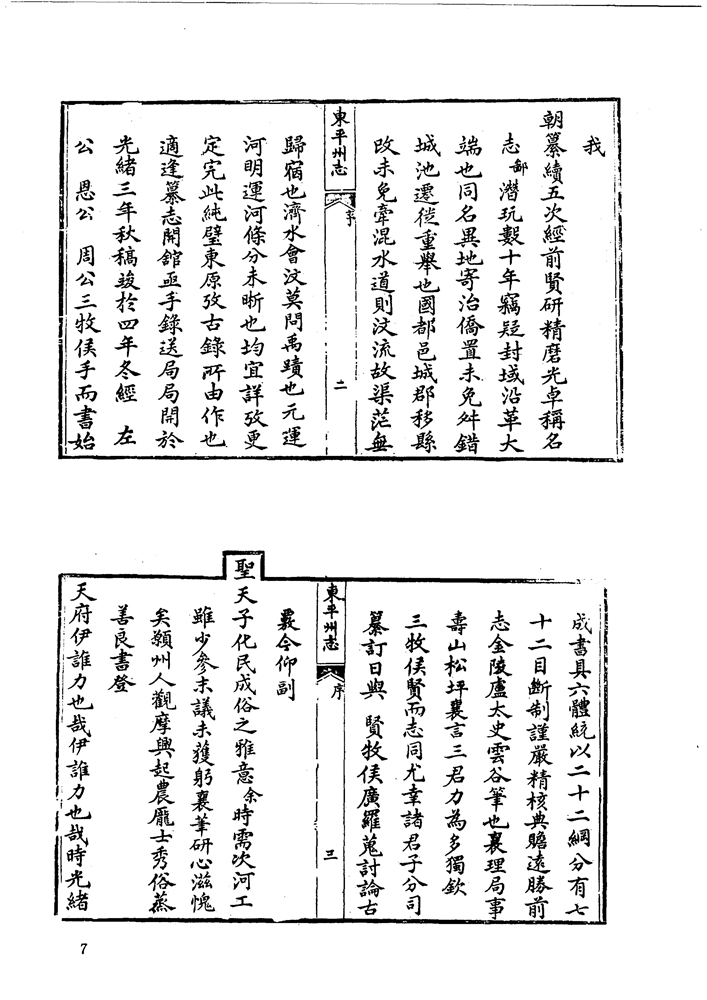 我
朝纂續五次經前賢研精磨光卓稱名
志鄙潛玩數十年竊疑封域沿革大
端也同名異地寄治僑置未免舛錯
城池遷徙重舉也國都邑城郡移縣
改未免牽混水道則汶流故渠茫無
東平州志
序
二
歸宿也濟水會汶莫問禹蹟也元運
河明運河條分未晰也均宜詳攷更
定完此純璧東原攷古錄所由作也
適逢纂志開館亟手錄送局局開於
光緒三年秋稿竣於四年冬經 左
公 恩公 周公三牧侯手而書始
成書具六體統以二十二綱分有七
十二目斷制謹嚴精核典贍遠勝前
志金陵盧太史雲谷筆也襄理局事
壽山松坪襄言三君力為多獨欽
三牧侯賢而志同尤幸諸君子分司
纂訂日與 賢牧侯廣羅蒐討論古
東平州志
序
三
覈今仰副
聖天子化民成俗之雅意余時需次河工
雖少參末議未獲躬襄筆研心滋愧
矣願州人觀摩興起農厖士秀俗蒸
善良書登
天府伊誰力也哉伊誰力也哉時光緒
7